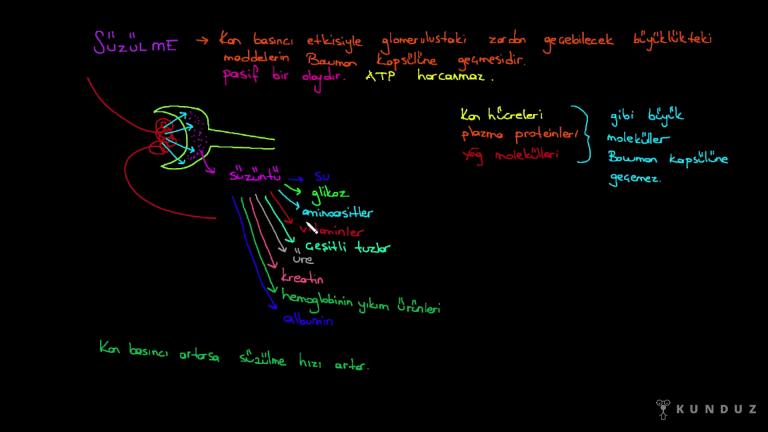 SÜZÜLME → Kan basıncı etkisiyle glomerulustaki zardan geçebilecek büyüklükteki
maddelerin Bowman Kapsülüne geçmesidir.
pasif bir olaydır. ATP harcanmaz.
Kan hücreleri
plazma proteinleri
yağ molekülleri
gibi büyük
moleküller
Bowman kapsülüne
geçemez.
süzüntü
su
glikoz
aminoasitler
vitaminler
çeşitli tuzlar
üre
kreatin
hemoglobinin yıkım ürünleri
albumin
Kan basıncı artarsa süzülme hızı artar.
KUNDUZ